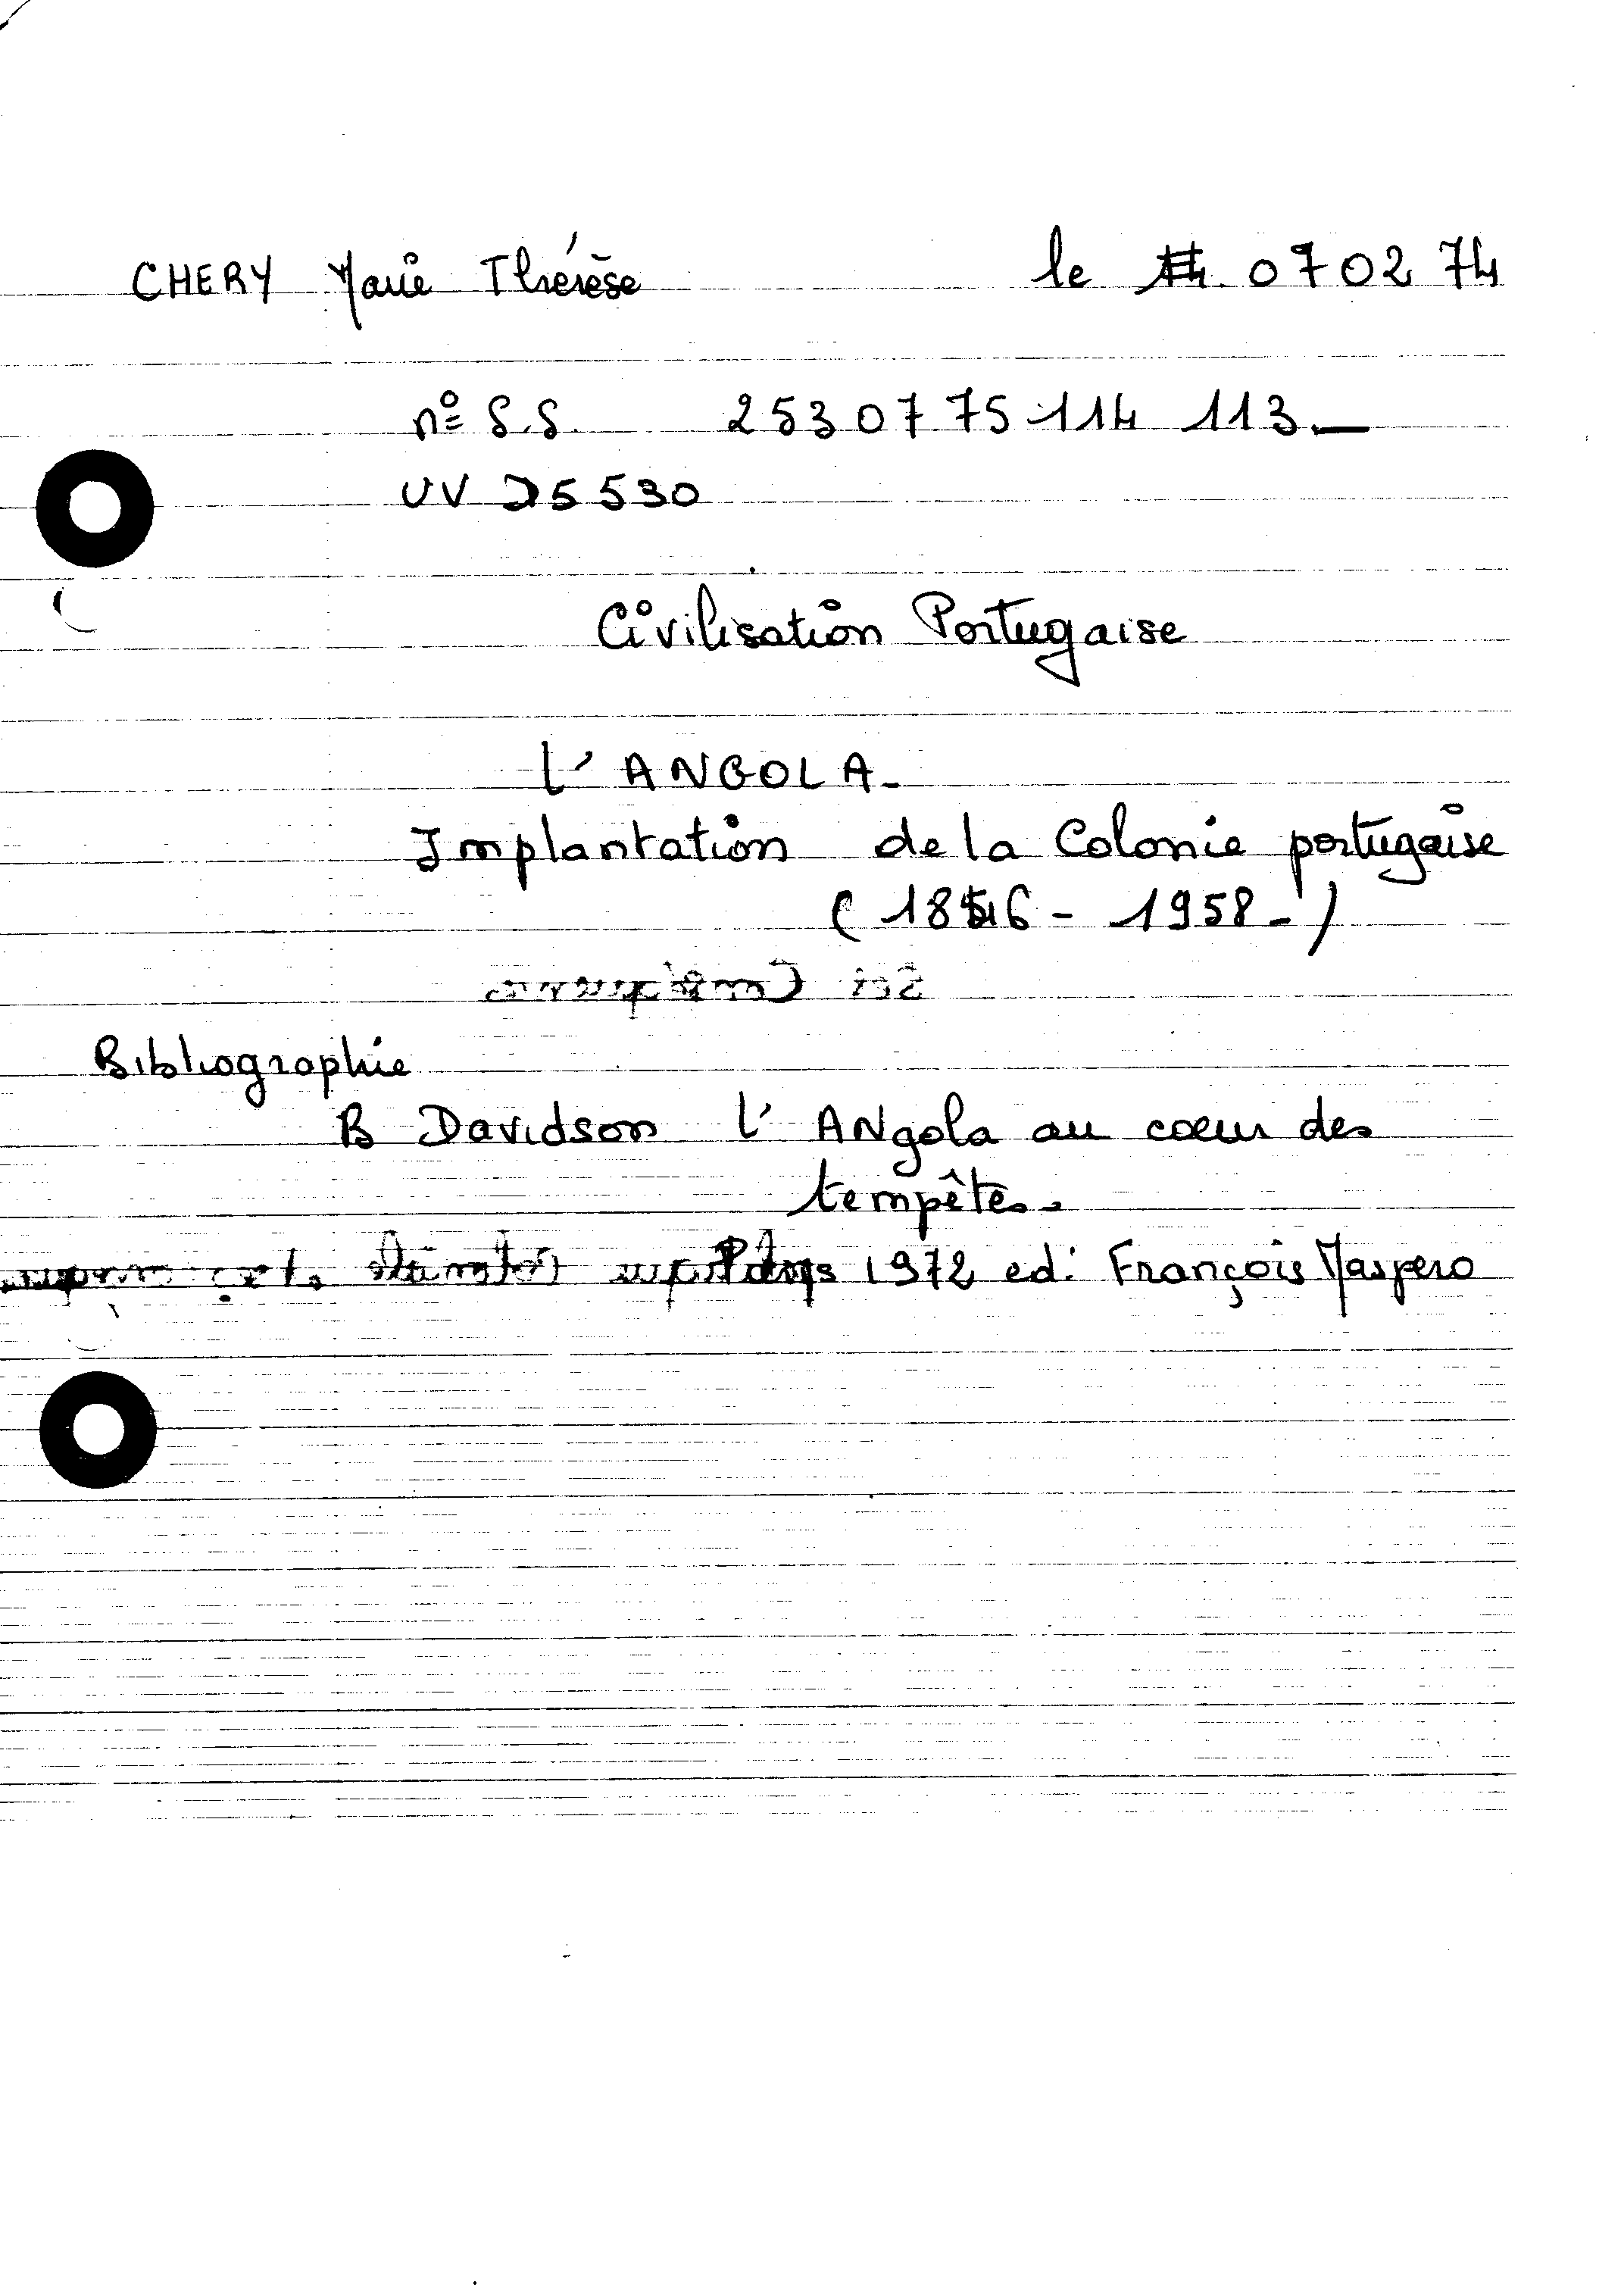 CHERY Marie Thérèse le 07 02 74
n° S.S. 253 07 75 114 113._
UV 25 530
Civilisation Portugaise
l'ANGOLA_
Implantation de la Colonie portugaise
( 1856 - 1958 - )
Bibliographie
B Davidson l'ANgola au coeur des
tempêtes.
1972 ed: François Maspero